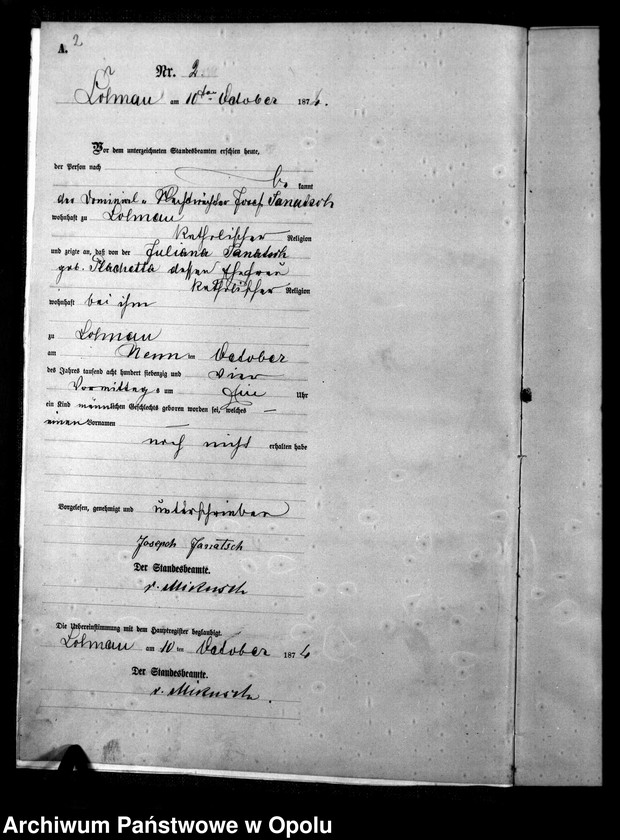 A. 2
Nr. 2
Lohnau am 10ten October 1874.
Vor dem unterzeichneten Standesbeamten erschien heute,
der Person nach
be kannt
der Dominial- Josef Janatsch
wohnhaft zu Lohnau
katholischer Religion
und zeigte an, daß von der Juliana Janatsch
geb. Kachetta dessen Ehefrau
katholischer Religion
wohnhaft bei ihm
zu Lohnau
am Neun ten October
des Jahres tausend acht hundert siebenzig und vier
Vormittags um Uhr
ein Kind männlichen Geschlechts geboren worden sei, welches
einen Vornamen
noch nicht erhalten habe
Vorgelesen, genehmigt und unterschrieben
Joseph Janatsch
Der Standesbeamte.
v. Mikusch
Die Uebereinstimmung mit dem Hauptregister beglaubigt.
Lohnau am 10 ten October 1874
Der Standesbeamte.
v. Mikusch.
Archiwum Państwowe w Opolu